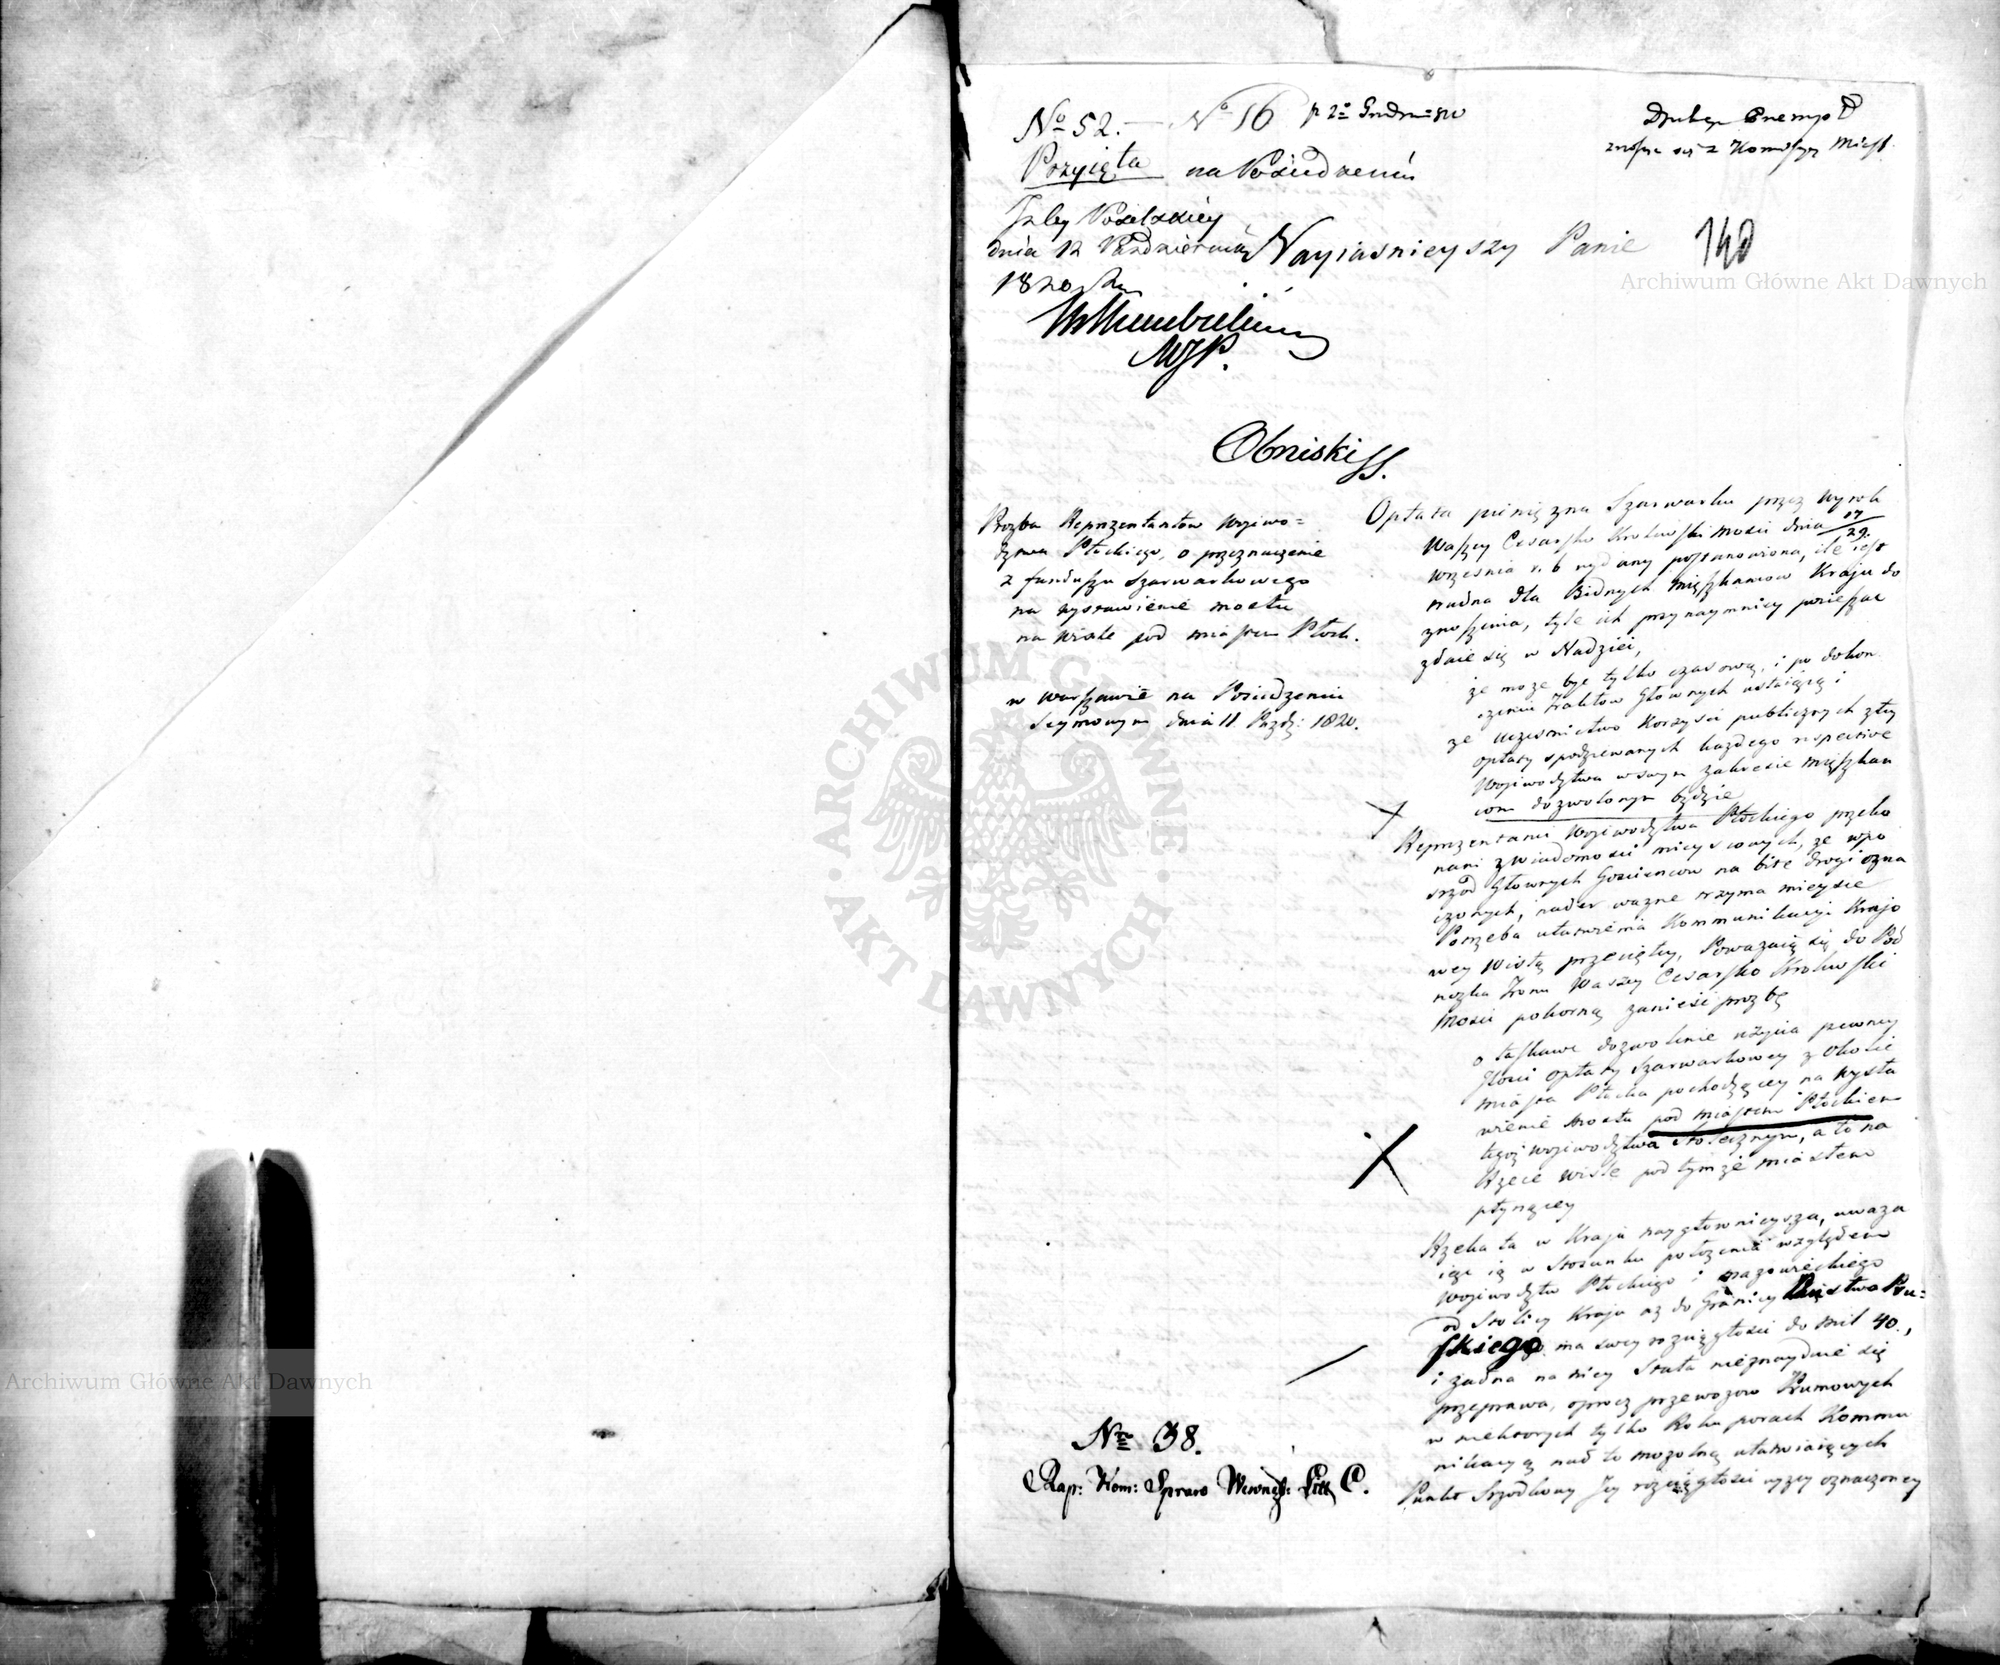 No 52. — No 16 p 2o Grudnia 820
Przyięta na Posiedzeniu
Izby Poselskiey
dnia 12 Października
1820 Ru
MJP.
Drugi Exemp
znosi się z Komissyą
Nayiasnieyszy Panie
140
Obniski SS.
Prozba Reprezentantów Wojewo=
dztwa Płockiego, o przeznaczenie
z funduszu Szarwarkowego
na wystawienie mostu
na Wiśle pod miastem Płock.
w Warszawie na Posiedzeniu
Seymowym dnia 11 Pazdz: 1820.
Opłata pieniężna Szarwarku przez wyrok
Waszey Cesarsko Krolewskiey Mości dnia 17/29.
Września r. b wydany postanowiona, ile iest
trudna dla Biednych Mięszkancow Kraju do
znoszenia, tyle ich przynaymniey pocieszac
zdaie się w Nadziei,
że może byc tylko czasową, i po dokon
czeniu Traktów Głownych ustaiącą i
że uczesnictwo Korzysci publicznych z tey
opłaty spodziewanych każdego respective
Wojewodztwa w swym zakresie Mięszkan
com dozwolonym będzie
Reprezentanci Wojewodztwa Płockiego przeko
nani z wiadomości mieyscowych, ze wpo
srzód Głownych Goscincow na bite drogi ozna
czonych, nader ważne trzyma mieysce
Potrzeba ułatwienia Kommunikacyi Krajo
wey Wisłą przeciętey, Poważaią się do Pod
nozka Tronu Waszey Cesarsko Krolewskiey
Mosci pokorną zanieść prozbę
o łaskawe dozwolenie użycia pewney
Ilosci opłaty Szarwarkowey z Okolic
miasta Płocka pochodzącey na wysta
wienie mostu pod miastem Płockiem
tegoż Wojewodztwa Stołecznym, a to na
Rzece Wisle pod tymże miastem
płynącey
Rzeka ta w Kraju naygłownieysza, uważa
iąc ią w stosunku położenia względem
Wojewodztw Płockiego i Mazowieckiego
od Stolicy Kraju aż do Granicy Państwa Pru=
skiego, ma swey rozciągłości do mil 40.,
i żadna na niey Stała nieznayduie się
przeprawa, oprocz przewozow Prumowych
w niektorych tylko Roku porach Kommu
nikacyą nad to mozolną ułatwiaiących
Punkt Srzodkowy Jey rozciągłości wyzey oznaczoney
Nro 38.
Rap: Kom: Spraw Wewnęt: Litt C.
Archiwum Główne Akt Dawnych
Archiwum Główne Akt Dawnych
· ARCHIWUM GŁÓWNE · AKT DAWNYCH